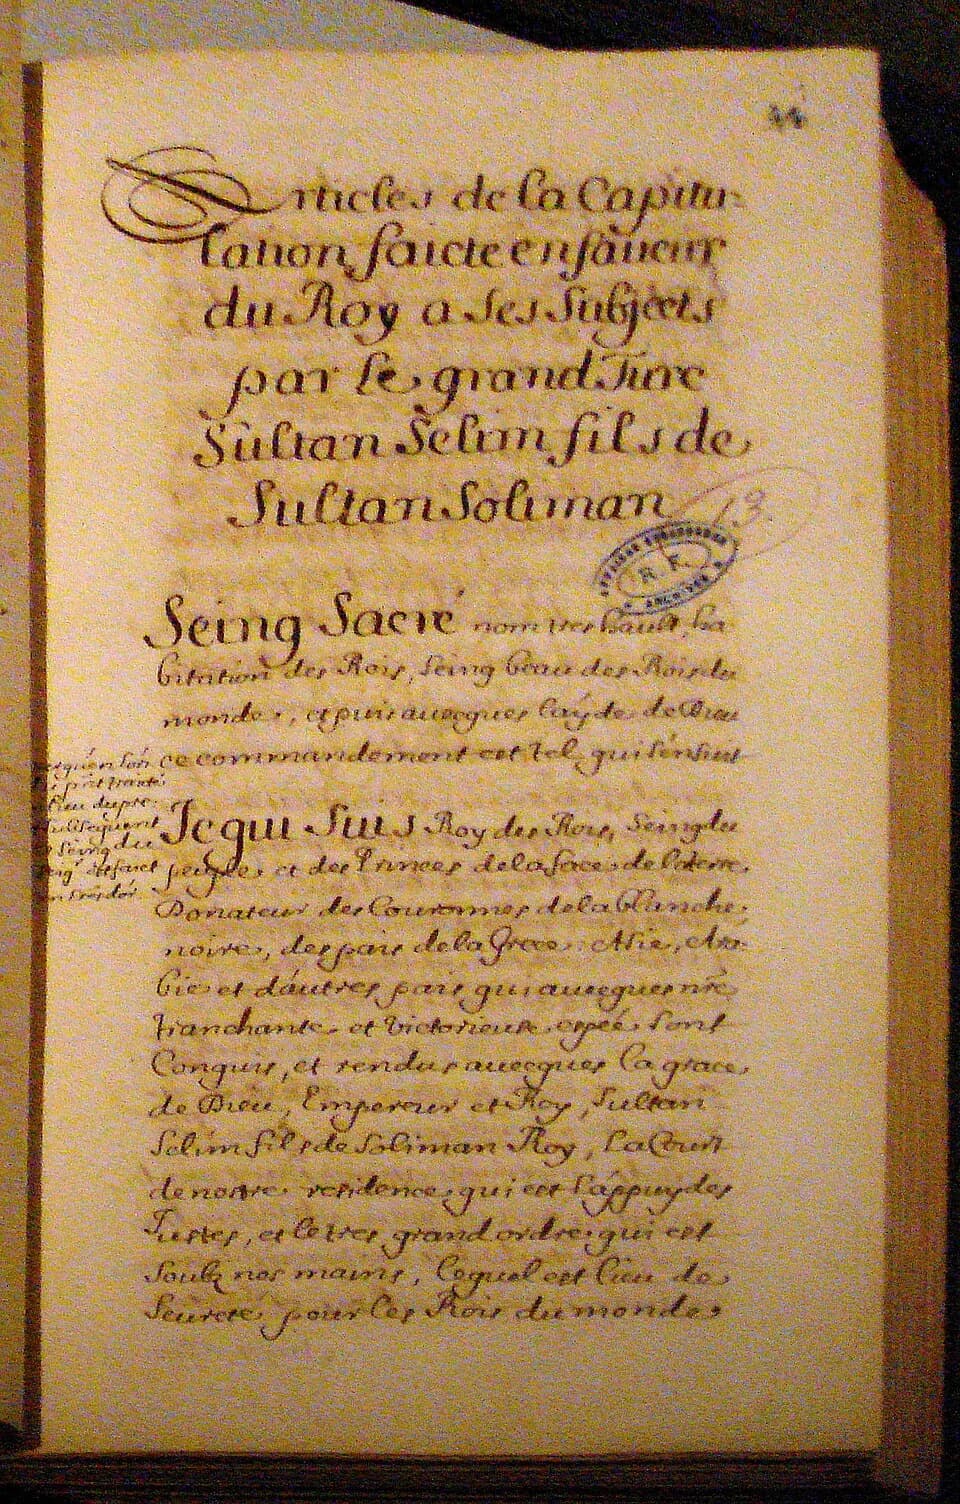 Articles de la Capitu-
lation faicte en faueur
du Roy a ses subjects
par le grand Turc
Sultan Selim fils de
Sultan Soliman
13.
R. F.
Seing Sacré nom tres hault, ha
bitation des Rois, seing beau des Rois du
monde, et puis auecques l'ayde de Dieu
ce commandement est tel, qui s'ensuit
Je qui suis Roy des Rois, seing du
et des Princes de la face de la terre
Donateur des Couronnes de la blanche,
noire, des pais de la Grece Asie, Ara-
bie et d'autres pais qui auecques nre
tranchante et victorieuse espée sont
Conquis, et rendus auecques la grace
de Dieu, Empereur et Roy, Sultan
Selim fils de Soliman Roy, La Court
de nostre residence qui est l'appuy des
Justes, et le tres grand ordre qui est
soubz nos mains, lequel est lieu de
seureté pour les Rois du monde,